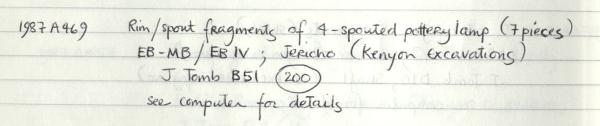 1987 A 469 Rim/spout fragments of 4-spouted pottery lamp (7 pieces)
EB-MB/EB IV ; Jericho (Kenyon excavations)
J Tomb B51 (200)
see computer for details